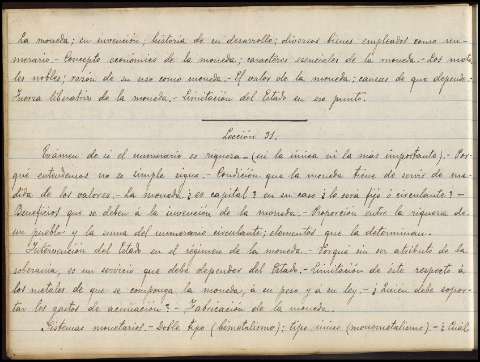 La moneda; su invención; historia de su desarrollo; diversos bienes empleados como nu-
merario.- Concepto económico de la moneda; caractéres esenciales de la moneda.- Los meta-
les nobles; razón de su uso como moneda.- El valor de la moneda; causas de que depende.-
Fuerza liberatriz de la moneda.- Limitación del Estado en ese punto.
Lección 31.
Exámen de si el numerario es riqueza.- (ni la única ni la mas importante).- Por-
qué entendemos no es simple signo.- Condición que la moneda tiene de servir de me-
dida de los valores.- La moneda ¿es capital? en su caso ¿lo será fijo ó circulante?-
Beneficios que se deben á la invención de la moneda.- Proporción entre la riqueza de
un pueblo y la suma del numerario circulante; elementos que la determinan.
Intervención del Estado en el régimen de la moneda.- Porqué sin ser atributo de la
soberanía, es un servicio que debe depender del Estado.- Limitación de éste respecto á
los metales de que se componga la moneda, á su peso y á su ley.- ¿Quién debe sopor-
tar los gastos de acuñación?- Fabricación de la moneda.
Sistemas monetarios.- Doble tipo (bimetalismo); tipo único (monometalismo).- ¿Cuál